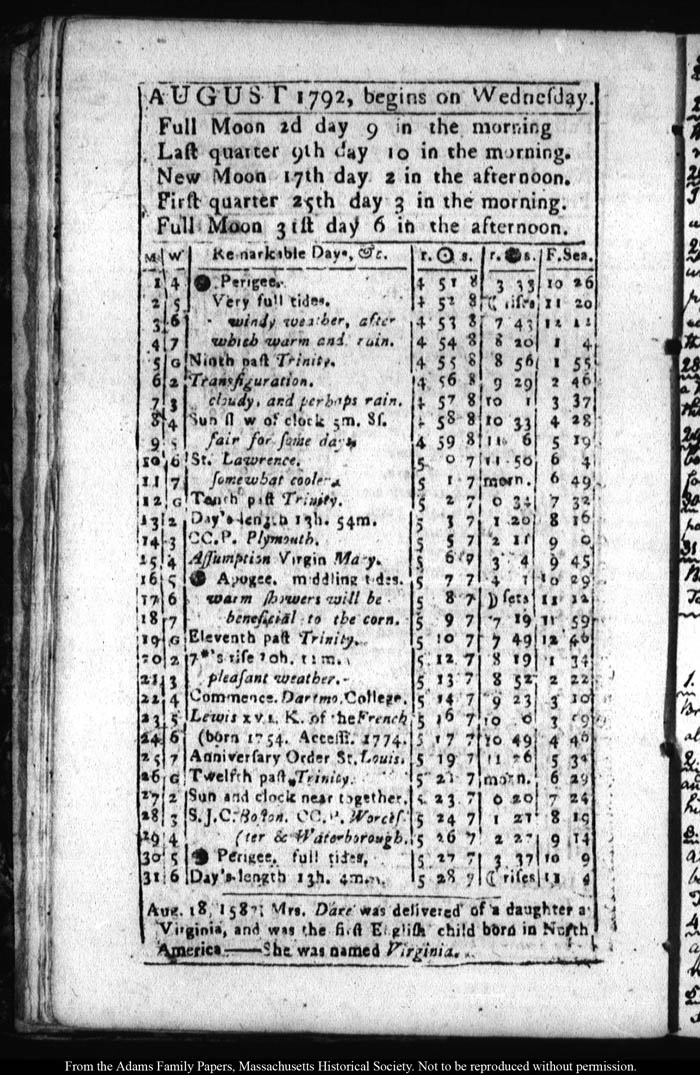 AUGUST 1792, begins on Wedneſday.
Full Moon 2d day 9 in the morning
Laſt quarter 9th day 10 in the morning.
New Moon 17th day 2 in the afternoon.
Firſt quarter 25th day 3 in the morning.
Full Moon 31ſt day 6 in the afternoon.
M W Remarkable Days, &c. r. ☉ s. r. s. F. Sea.
1 4 Perigee. 4 51 8 3 33 10 26
2 5 Very full tides. 4 52 8 ☾ riſes 11 20
3 6 windy weather, after 4 53 8 7 43 12 12
4 7 which warm and rain. 4 54 8 8 20 1 4
5 G Ninth paſt Trinity. 4 55 8 8 56 1 55
6 2 Transfiguration. 4 56 8 9 29 2 46
7 3 cloudy, and perhaps rain. 4 57 8 10 1 3 37
8 4 Sun ſl w of clock 5m. 8ſ. 4 58 8 10 33 4 28
9 5 fair for ſome days 4 59 8 11 6 5 19
10 6 St. Lawrence. 5 0 7 11 50 6 4
11 7 ſomewhat cooler. 5 1 7 morn. 6 49
12 G Tenth paſt Trinity. 5 2 7 0 34 7 32
13 2 Day's length 13h. 54m. 5 3 7 1 20 8 16
14 3 CC.P. Plymouth. 5 5 7 2 11 9 0
15 4 Aſſumption Virgin Mary. 5 6 7 3 4 9 45
16 5 Apogee. middling tides. 5 7 7 4 1 10 29
17 6 warm ſhowers will be 5 8 7 ☽ ſets 11 12
18 7 beneficial to the corn. 5 9 7 7 19 11 59
19 G Eleventh paſt Trinity. 5 10 7 7 49 12 46
20 2 7*'s riſe 10h. 11m. 5 12 7 8 19 1 34
21 3 pleaſant weather. 5 13 7 8 52 2 22
22 4 Commence. Dartmo. College. 5 14 7 9 23 3 10
23 5 Lewis XVI. K. of the French 5 16 7 10 6 3 59
24 6 (born 1754. Acceſſ. 1774. 5 17 7 10 49 4 46
25 7 Anniverſary Order St. Louis. 5 19 7 11 26 5 34
26 G Twelfth paſt Trinity. 5 21 7 morn. 6 29
27 2 Sun and clock near together. 5 23 7 0 20 7 24
28 3 S.J.C. Boſton. CC.P. Worceſ 5 24 7 1 21 8 19
29 4 (ter & Waterborough. 5 26 7 2 27 9 14
30 5 Perigee. full tides. 5 27 7 3 37 10 9
31 6 Day's length 13h. 4m. 5 28 7 ☾ riſes 11 4
Aug. 18, 1587; Mrs. Dare was delivered of a daughter a
Virginia, and was the firſt Engliſh child born in North
America.——She was named Virginia.
From the Adams Family Papers, Massachusetts Historical Society. Not to be reproduced without permission.